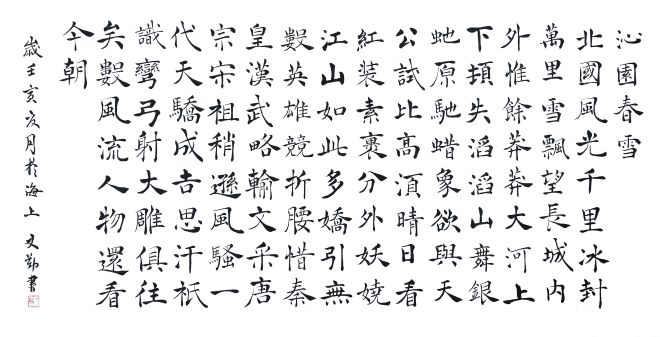 沁園春雪
北國風光千里冰封
萬里雪飄望長城内
外惟餘莽莽大河上
下頓失滔滔山舞銀
虵原馳蜡象欲與天
公試比高湏晴日看
紅装素裹分外妖嬈
江山如此多嬌引無
數英雄競折腰惜秦
皇漢武略輸文采唐
宗宋祖稍遜風騷一
代天驕成吉思汗祇
識彎弓射大雕俱往
矣數風流人物還看
今朝
歲壬亥夏月於海上文勤書